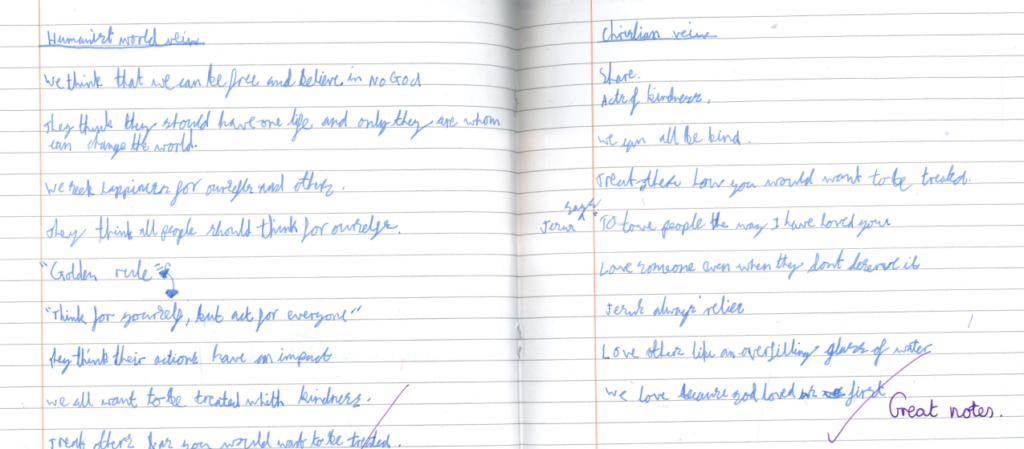 Humanist world veiw
We think that we can be free and believe in NO GOd
They think they should have one life and only they are whom
can change the world.
We seek happiness for ourselfs and others.
They think all people should think for ourselfs.
"Golden rule"
"Think for yourself, but act for everyone"
They think their actions have an impact
We all want to be treated whith kindness.
Treat others how you would want to be treated.
Christian veiw
Share.
Acts of kindness.
We can all be kind.
Treat others how you would want to be treated.
Jesus says "TO love people the way I have loved you
Love someone even when they dont deserve it
Jesus always
Love others like an overfilling glass of water
We love because god loved first
Great notes.